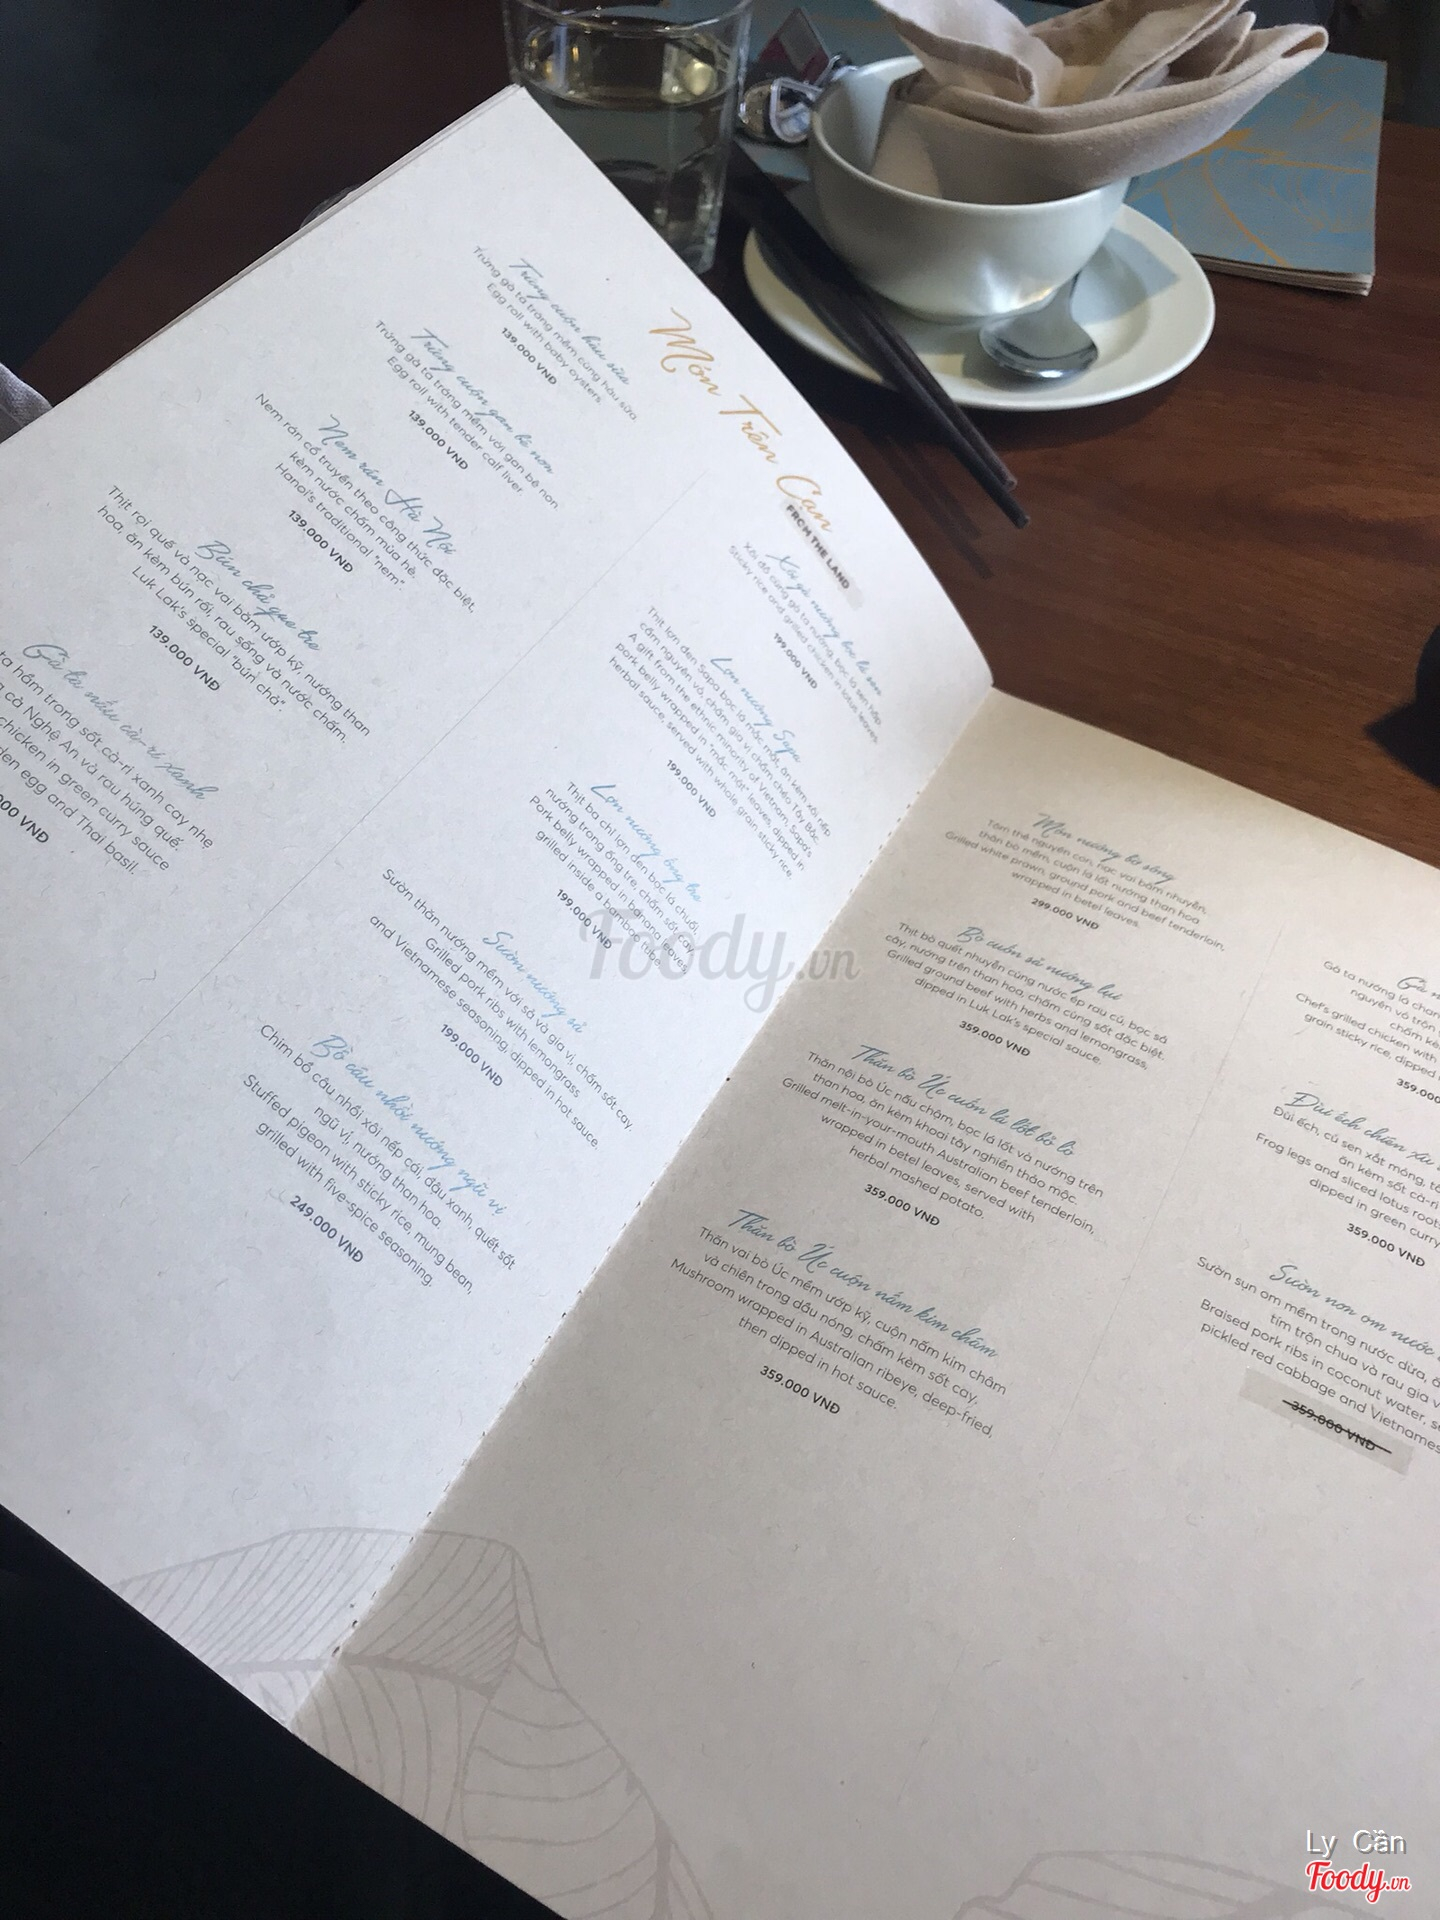 Món Trên Cạn
FROM THE LAND
Trứng cuộn hàu sữa
Trứng gà ta tráng mềm cùng hàu sữa.
Egg roll with baby oysters.
139.000 VNĐ
Trứng cuộn gan bê non
Trứng gà ta tráng mềm với gan bê non.
Egg roll with tender calf liver.
139.000 VNĐ
Nem rán Hà Nội
Nem rán cổ truyền theo công thức đặc biệt,
kèm nước chấm mùa hè.
Hanoi's traditional "nem".
139.000 VNĐ
Bún chả que tre
Thịt rọi quế và nạc vai băm ướp kỹ, nướng than
hoa, ăn kèm bún rối, rau sống và nước chấm.
Luk Lak's special "bún chả".
139.000 VNĐ
Gà ta nấu cà-ri xanh
ta hầm trong sốt cà-ri xanh cay nhẹ
cà Nghệ An và rau húng quế.
chicken in green curry sauce
den egg and Thai basil.
000 VNĐ
Xôi gà nướng bọc lá sen
Xôi đỗ cùng gà ta nướng, bọc lá sen hấp.
Sticky rice and grilled chicken in lotus leaves.
199.000 VNĐ
Lợn nướng Sapa
Thịt lợn đen Sapa bọc lá mắc mật, ăn kèm xôi nếp
cẩm nguyên vỏ, chấm gia vị chẩm chéo Tây Bắc.
A gift from the ethnic minority of Vietnam, Sapa's
pork belly wrapped in "mắc mật" leaves, dipped in
herbal sauce, served with whole grain sticky rice.
199.000 VNĐ
Lợn nướng ống tre
Thịt ba chỉ lợn đen bọc lá chuối,
nướng trong ống tre, chấm sốt cay.
Pork belly wrapped in banana leaves,
grilled inside a bamboo tube.
199.000 VNĐ
Sườn nướng sả
Sườn thăn nướng mềm với sả và gia vị, chấm sốt cay.
Grilled pork ribs with lemongrass
and Vietnamese seasoning, dipped in hot sauce.
199.000 VNĐ
Bồ câu nhồi nướng ngũ vị
Chim bồ câu nhồi xôi nếp cái, đậu xanh, quết sốt
ngũ vị, nướng than hoa.
Stuffed pigeon with sticky rice, mung bean,
grilled with five-spice seasoning.
249.000 VNĐ
Món nướng bờ sông
Tôm thẻ nguyên con, nạc vai băm nhuyễn,
thăn bò mềm, cuộn lá lốt nướng than hoa.
Grilled white prawn, ground pork and beef tenderloin,
wrapped in betel leaves.
299.000 VNĐ
Bò cuốn sả nướng lụi
Thịt bò quết nhuyễn cùng nước ép rau củ, bọc sả
cây, nướng trên than hoa, chấm cùng sốt đặc biệt.
Grilled ground beef with herbs and lemongrass,
dipped in Luk Lak's special sauce.
359.000 VNĐ
Thăn bò Úc cuốn lá lốt bỏ lò
Thăn nội bò Úc nấu chậm, bọc lá lốt và nướng trên
than hoa, ăn kèm khoai tây nghiền thảo mộc.
Grilled melt-in-your-mouth Australian beef tenderloin,
wrapped in betel leaves, served with
herbal mashed potato.
359.000 VNĐ
Thăn bò Úc cuộn nấm kim châm
Thăn vai bò Úc mềm ướp kỹ, cuộn nấm kim châm
và chiên trong dầu nóng, chấm kèm sốt cay.
Mushroom wrapped in Australian ribeye, deep-fried,
then dipped in hot sauce.
359.000 VNĐ
Gà n
Gà ta nướng lá chan
nguyên vỏ trộn
chấm kè
Chef's grilled chicken with
grain sticky rice, dipped
359.00
Đùi ếch chiên xù
Đùi ếch, củ sen xắt mỏng, tẩ
ăn kèm sốt cà-ri
Frog legs and sliced lotus roots
dipped in green curry
359.000 VNĐ
Sườn non om nước
Sườn sụn om mềm trong nước dừa, ă
tím trộn chua và rau gia v
Braised pork ribs in coconut water, se
pickled red cabbage and Vietnames
359.000 VNĐ
Foody.vn
Ly Cần
Foody.vn